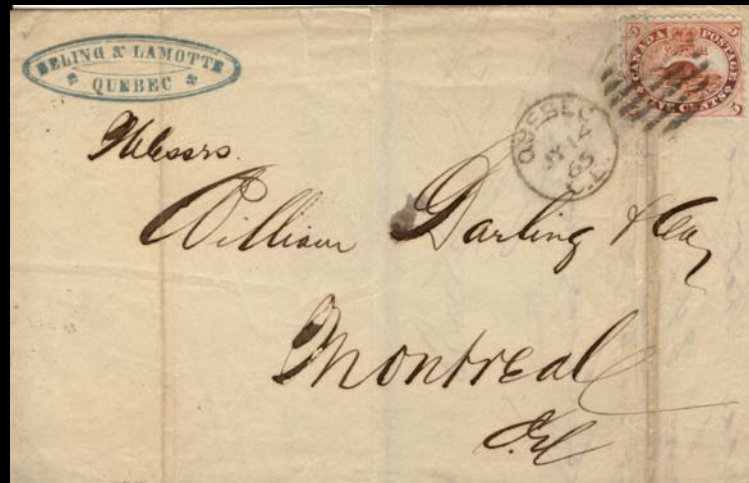 BELING & LAMOTTE
QUEBEC
5 CANADA POSTAGE 5
FIVE CENTS 5
QUEBEC
JY 14
65
C.E.
Messrs.
William Darling & Co,
Montreal